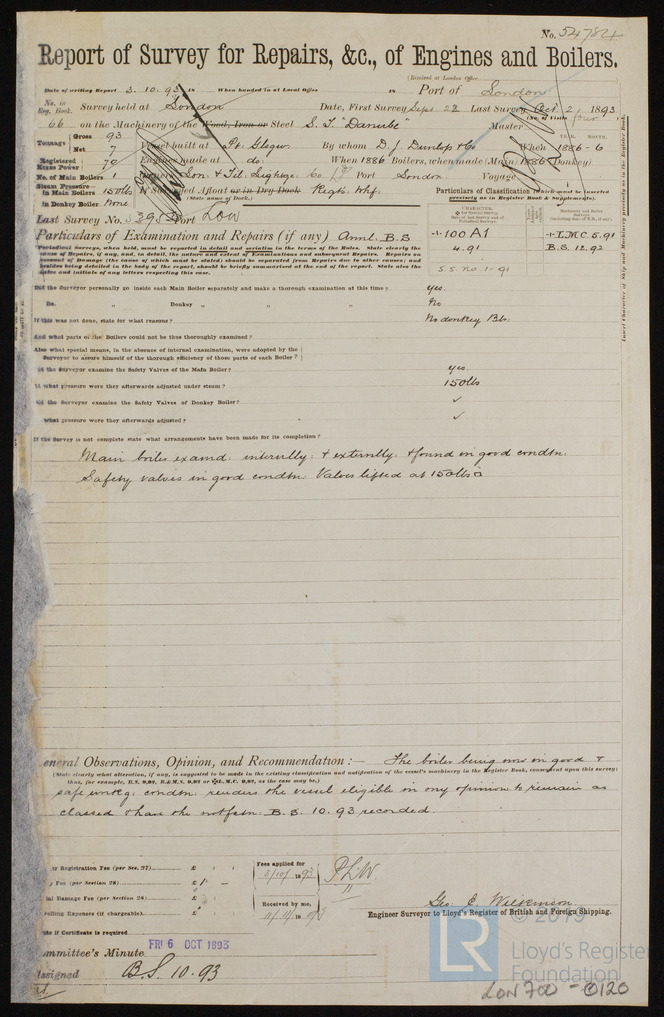 No. 54784
Report of Survey for Repairs, &c., of Engines and Boilers.
(Received at London Office
Date of writing Report 3.10.93 18 When handed in at Local Office 18 Port of London
No. in Reg. Book. Survey held at London Date, First Survey Sept. 28 Last Survey Oct 2, 1893
(No. of Visits four)
66 on the Machinery of the Wood, Iron or Steel S.T. "Danube" Master
Tonnage Gross 93 Net 7 Vessel built at Pt. Glasgw. By whom D. J. Dunlop & Co When YEAR. MONTH. 1886-6
Registered Horse Power 70 Engines made at do. When 1886 Boilers, when made (Main) 1886 (Donkey)
No. of Main Boilers 1 Owners Lon. & Til. Lighterge. Co Ld Port London Voyage
Steam Pressure in Main Boilers 150lbs If Surveyed Afloat or in Dry Dock Regts. Whf.
in Donkey Boiler None (State name of Dock.)
Particulars of Classification (which must be inserted precisely as in Register Book & Supplements).
Last Survey No. Port Low
CHARACTER.
Particulars of Examination and Repairs (if any) Annl. B.S
+100 A1 +L.M.C. 5.91
4.91 B.S. 12.92
S.S. No. 1-91
Periodical Surveys, when held, must be reported in detail and seriatim in the terms of the Rules. State clearly the
cause of Repairs, if any, and, in detail, the nature and extent of Examinations and subsequent Repairs. Repairs on
account of Damage (the cause of which must be stated) should be separated from Repairs due to other causes; and
besides being detailed in the body of the report, should be briefly summarised at the end of the report. State also the
dates and initials of any letters respecting this case.
Did the Surveyor personally go inside each Main Boiler separately and make a thorough examination at this time? yes.
Do. " Donkey " " " No
If this was not done, state for what reasons? No donkey Blr.
And what parts of the Boilers could not be thus thoroughly examined?
Also what special means, in the absence of internal examination, were adopted by the
Surveyor to assure himself of the thorough efficiency of those parts of each Boiler?
Did the Surveyor examine the Safety Valves of the Main Boiler? yes
At what pressure were they afterwards adjusted under steam? 150lbs
Did the Surveyor examine the Safety Valves of Donkey Boiler? ✓
What pressure were they afterwards adjusted? ✓
If the Survey is not complete state what arrangements have been made for its completion?
Main boiler examd. internlly. & externlly. & found in good condtn.
Safety valves in good condtn. Valves lifted at 150lbs
General Observations, Opinion, and Recommendation:— The boiler being now in good &
(State clearly what alteration, if any, is suggested to be made in the existing classification and notification of the vessel's machinery in the Register Book, consequent upon this survey;
thus, for example, B.S. 9,92, B.&M.S. 9,92 or L.M.C. 9,92, as the case may be.)
safe workg. condtn. renders the vessel eligible in my opinion to remain as
classed & have the notfctn. B.S. 10.93 recorded.
Registration Fee (per Sec. 27) £
Fee (per Section 28) £1
Damage Fee (per Section 28) £
Travelling Expenses (if chargeable). £
Fees applied for 3/10/1893
Received by me,
Geo. C. Wilkinson
Engineer Surveyor to Lloyd's Register of British and Foreign Shipping.
State if Certificate is required
Committee's Minute FRI 6 OCT 1893
Assigned B.S. 10.93
© 2019
LR
Lloyd's Register
Foundation
LON 700-0120